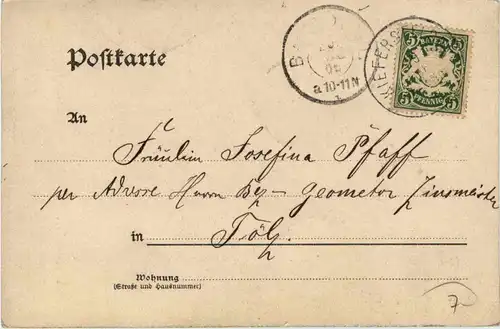 Postkarte
KIEFERS
5 5
PFENNIG
a.10-11 N
An
Fräulein Josefina Pfaff
per Adresse Herrn Bez- Geometer Zinsmeister
in Tölz.
Wohnung
(Straße und Hausnummer)
7